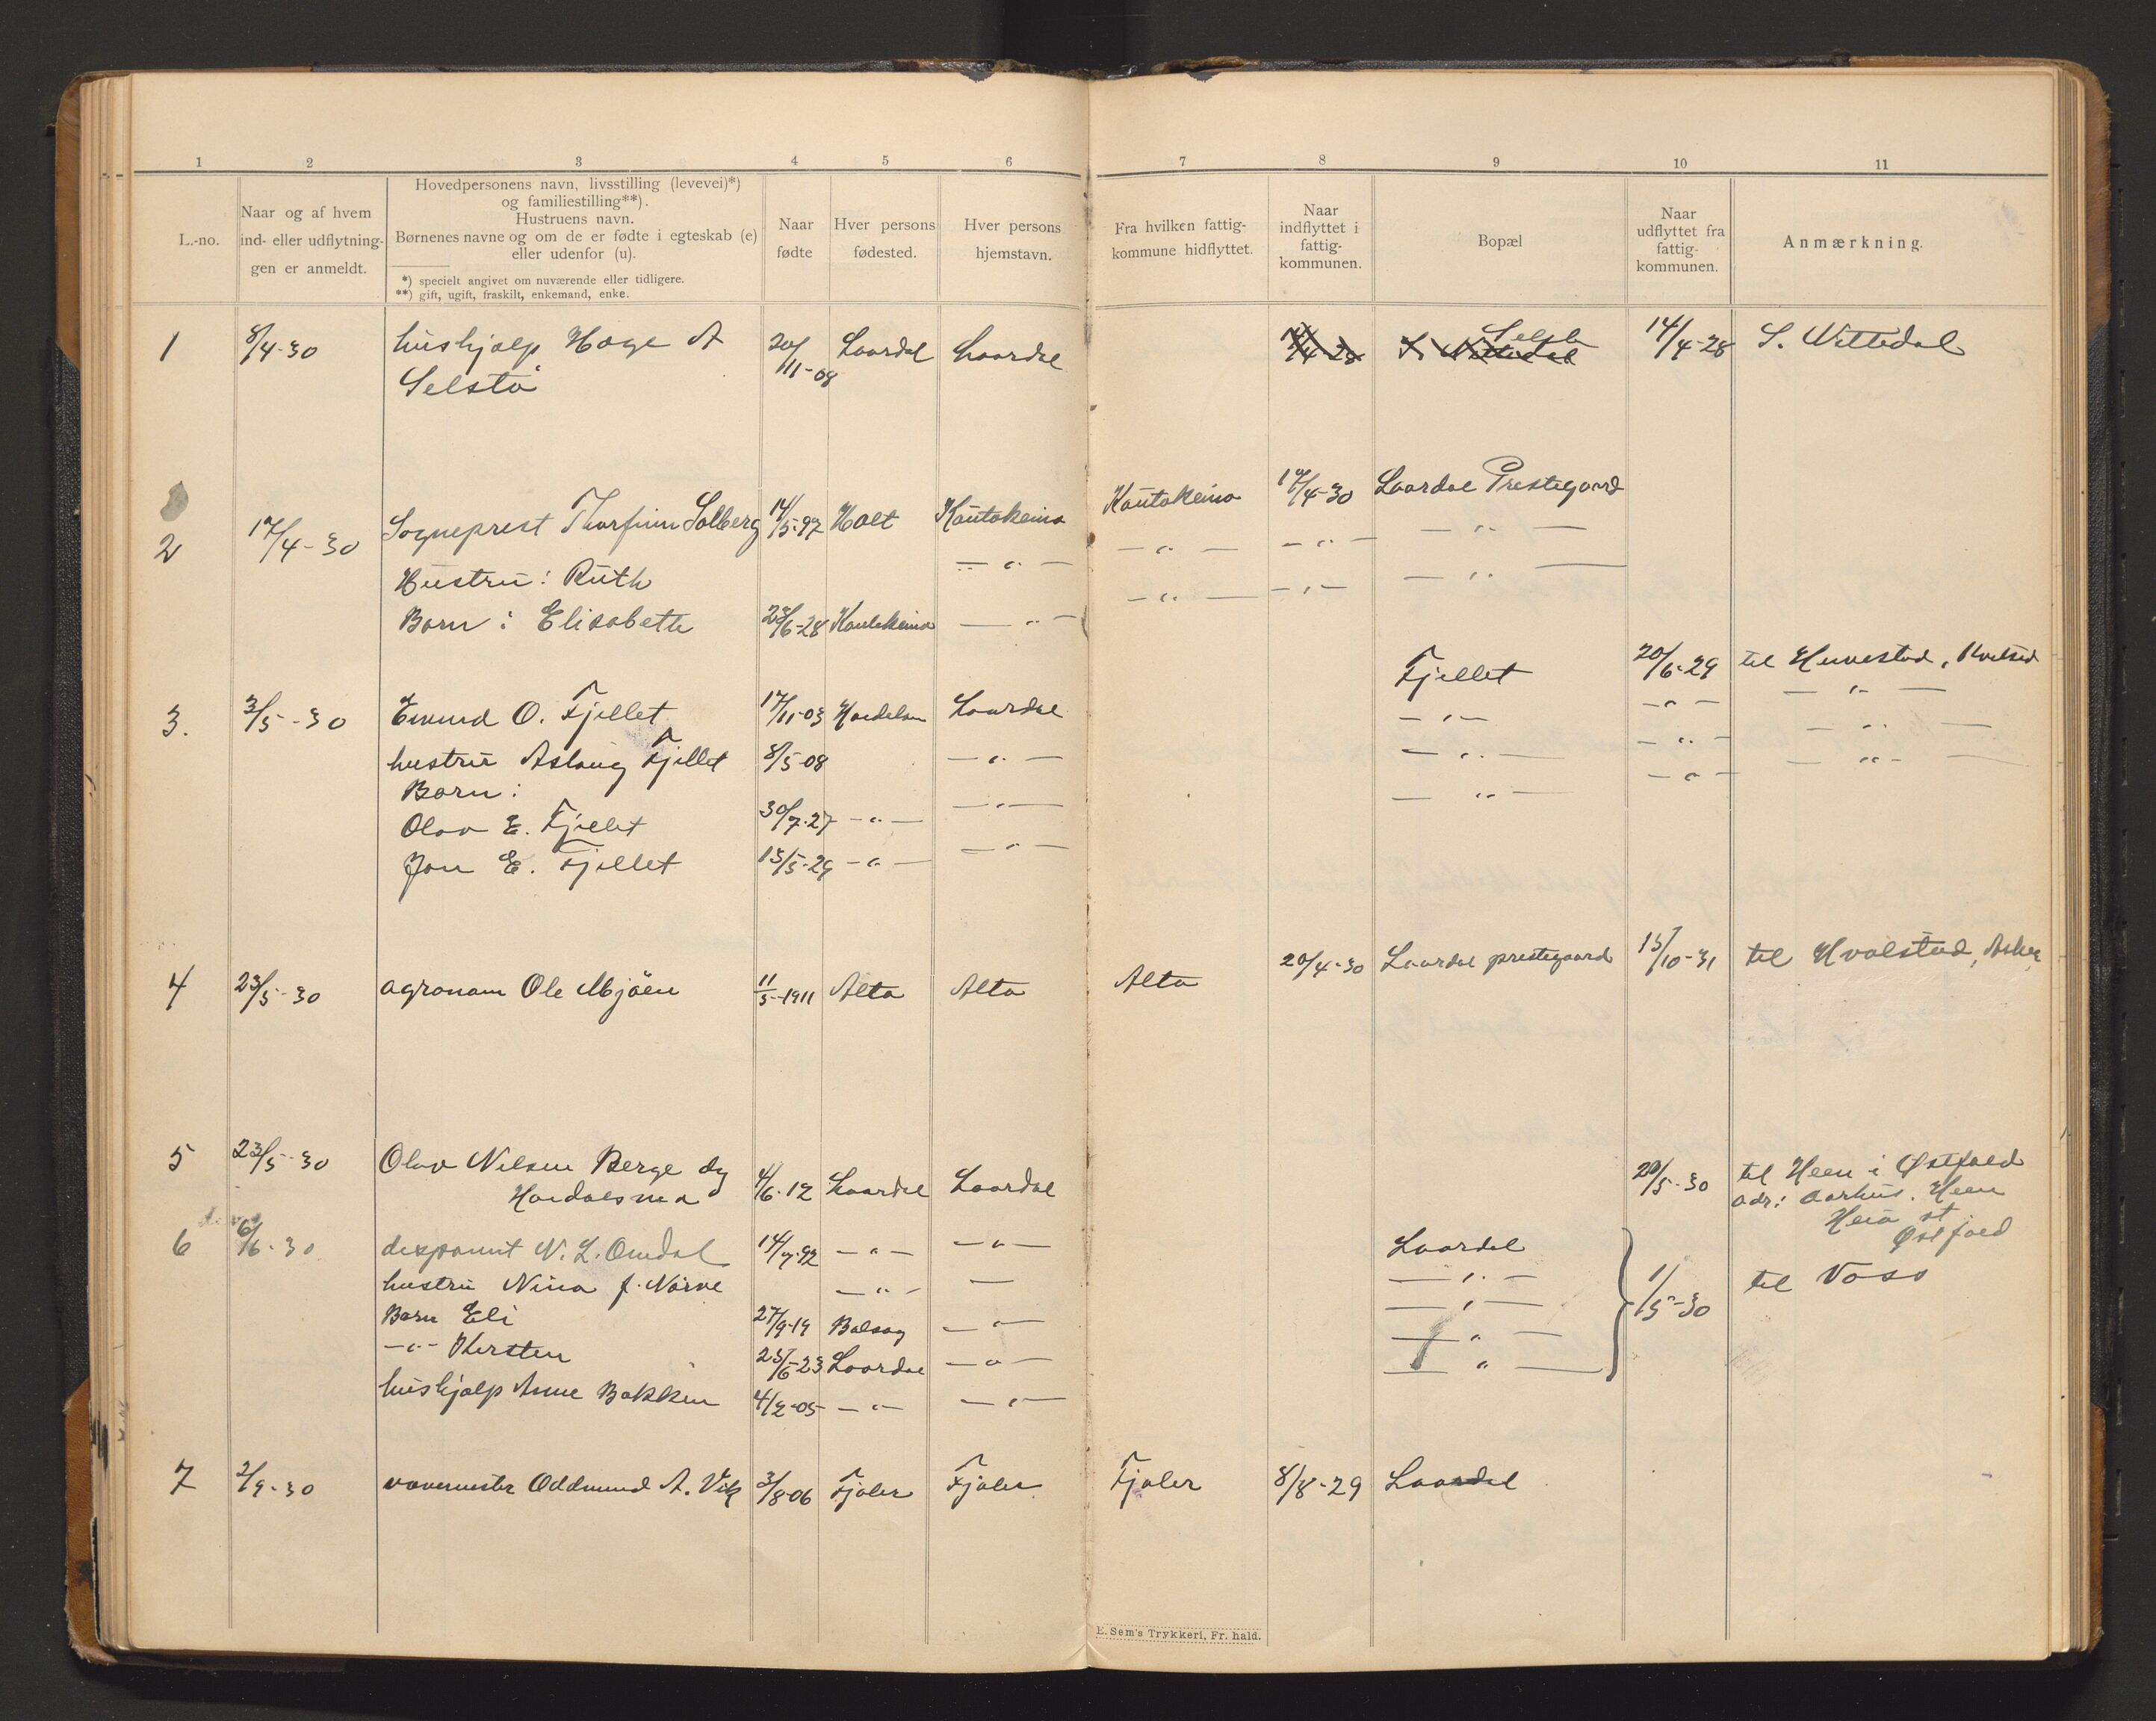 1 2 3 4 5 6 7 8 9 10 11
L.-no.
Naar og af hvem
ind- eller udflytnin-
gen er anmeldt.
Hovedpersonens navn, livsstilling (levevei)*)
og familiestilling**).
Hustruens navn.
Børnenes navne og om de er fødte i egteskab (e)
eller udenfor (u).
*) specielt angivet om nuværende eller tidligere.
**) gift, ugift, fraskilt, enkemand, enke.
Naar
fødte
Hver persons
fødested.
Hver persons
hjemstavn.
Fra hvilken fattig-
kommune hidflyttet.
Naar
indflyttet i
fattig-
kommunen.
Bopæl
Naar
udflyttet fra
fattig-
kommunen.
Anmærkning.
1 8/4-30 hushjælp Hæge A 20/11-08 Laardal Laardal 14/4-28 S. Vittedal
Selstø
2 17/4-30 Sogneprest Thorfinn Solberg 14/5-97 Holt Kautokeino Kautokeino 17/4-30 Laardal Prestegaard
Hustru: Ruth — „ — — „ — — „ — — „ —
Barn: Elisabeth 23/6-28 Kautokeino — „ — — „ — — „ — — „ —
3. 3/5-30 Eivind O. Fjellet 17/11-03 Høidalsm Laardal Fjellet 20/6-29 til
hustru Aslaug Fjellet 8/5-08 — „ — — „ — — „ — — „ —
Barn:
Olav E. Fjellet 30/7-27 — „ — — „ — — „ — — „ — — „ —
Jon E. Fjellet 15/5-29 — „ — — „ — — „ — — „ — — „ —
4 23/5-30 agronom Ole Mjøen 11/5-1911 Alta Alta Alta 20/4-30 Laardal prestegaard 15/10-31 til Hvalstad, Asker
5 23/5-30 Olav Nilsen Berge dy 4/6-12 Laardal Laardal 20/5-30 til Heen i Østfold
Høidalsmo adr: Aarhus. Heen
Heia st
Østfold
6 6/6-30 disponent N. L. Omdal 14/7-92 — „ — — „ — Laardal 1/5-30 til Voss
hustru Nina f. Nørve — „ — — — „ —
Barn Eli 27/9-19 — „ — — „ —
— „ — Kersten 25/6-23 Laardal — „ — — „ —
hushjælp Anne Bakken 4/2-05 — „ — — „ — — „ —
7 2/9-30 Oddmund A. Vik 3/8-06 Fjaler Fjaler Fjaler 8/8-29 Laardal
E. Sem's Trykkeri, Fr. hald.